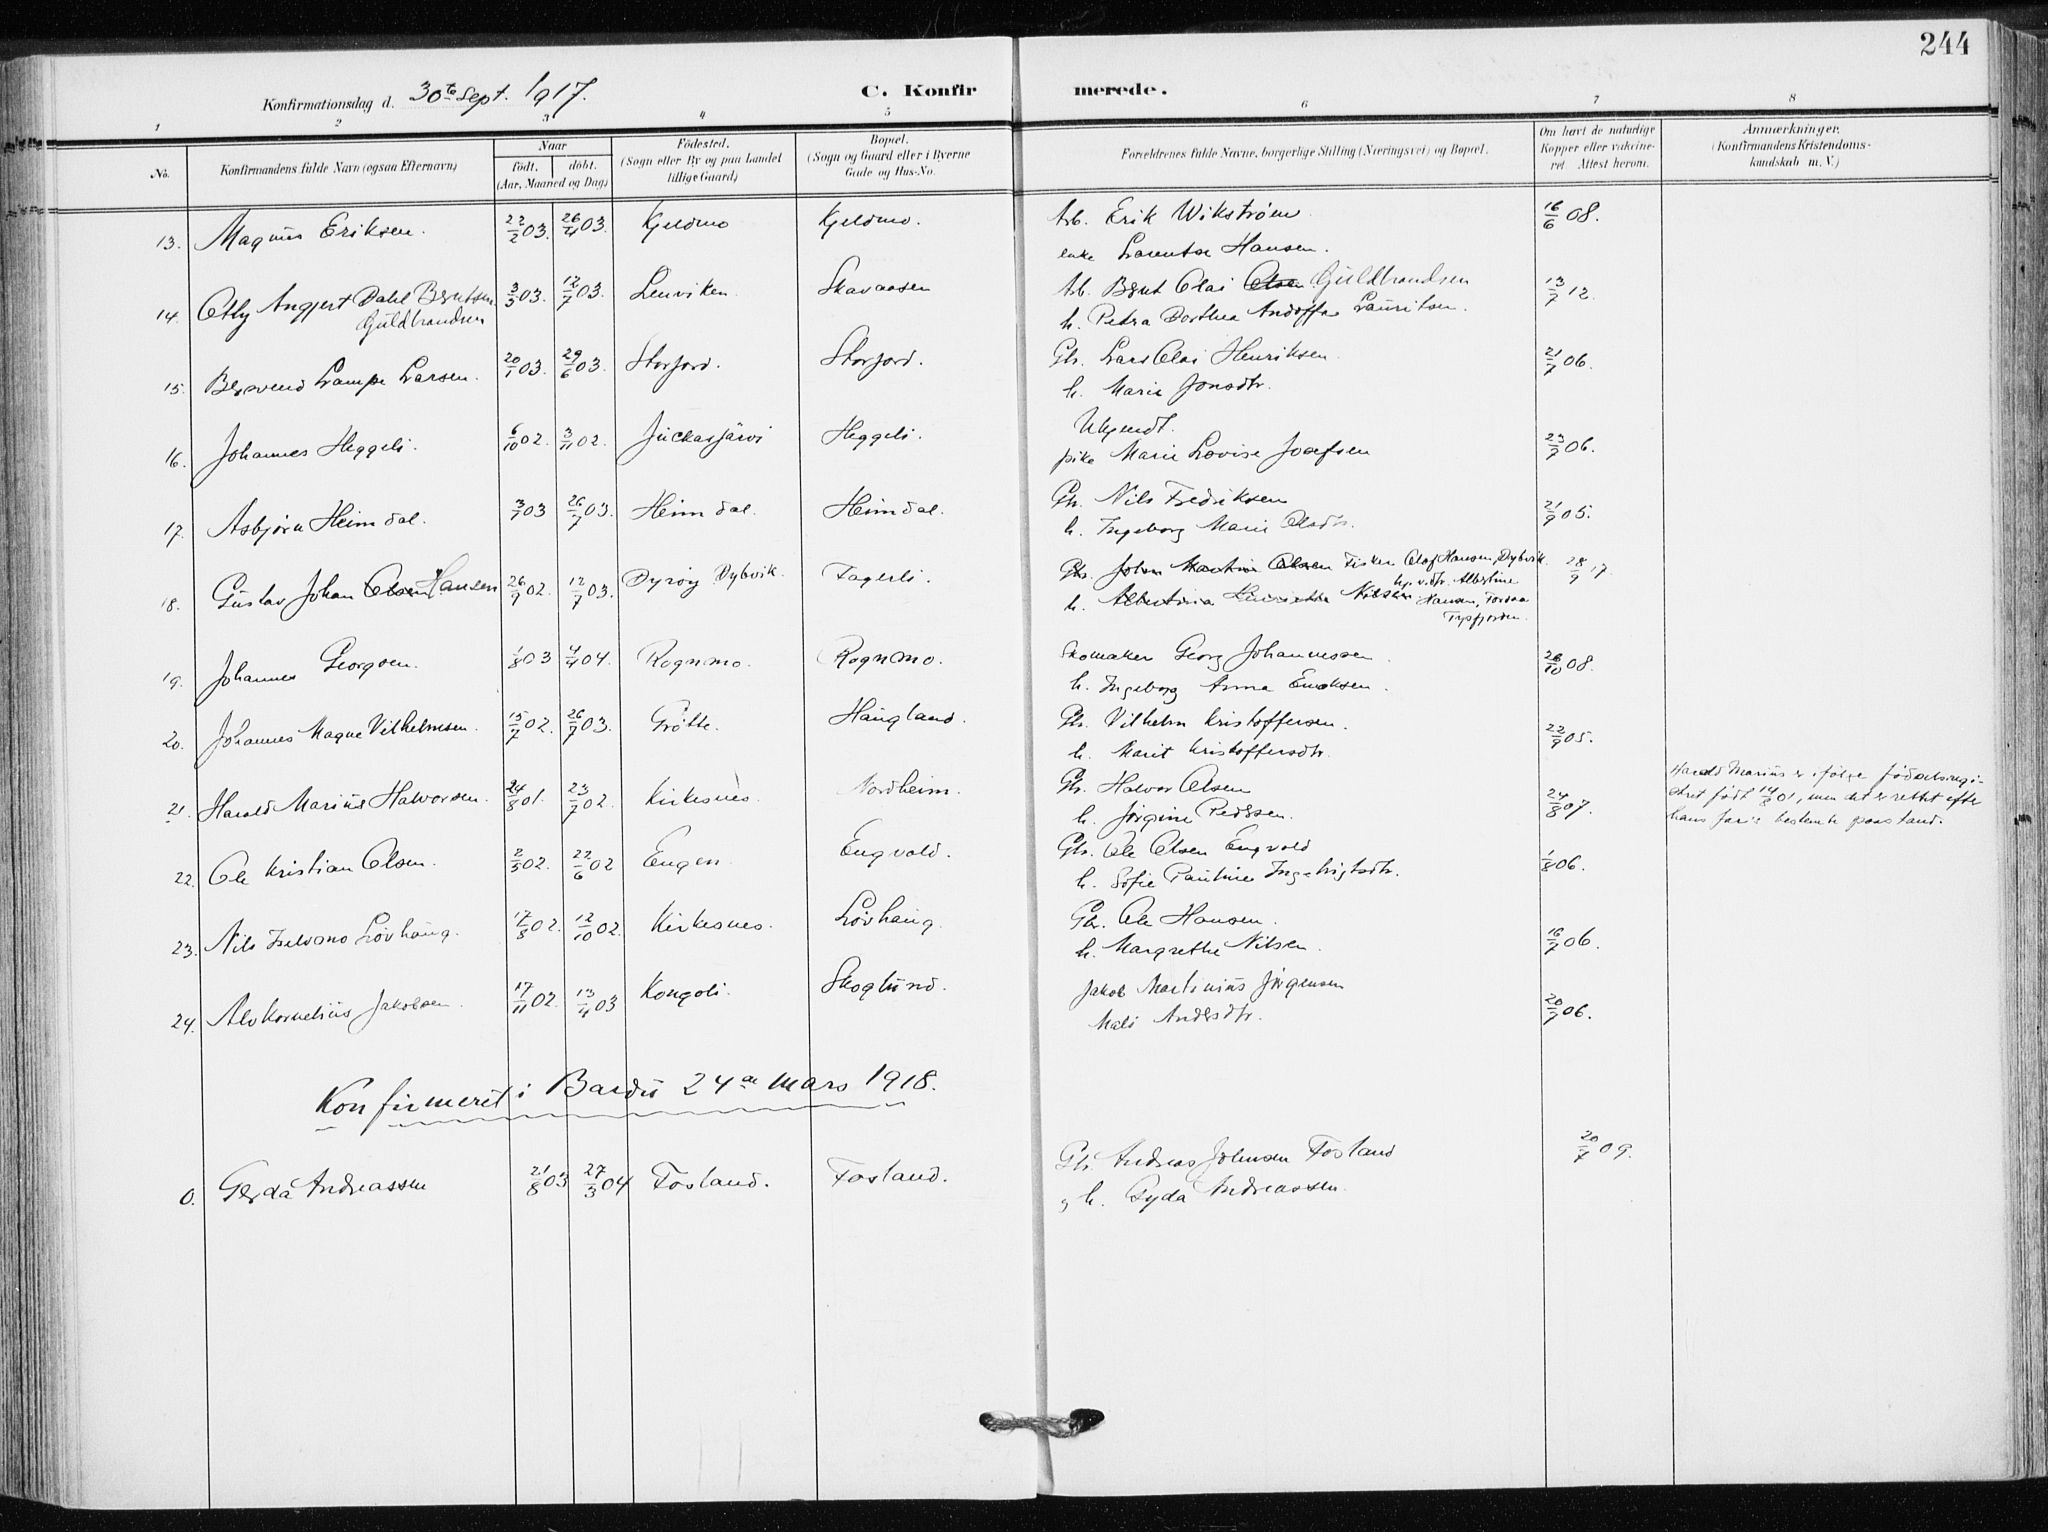 244
Konfirmationsdag d. 30te Sept. 1917. C. Konfirmerede.
1 2 3 4 5 6 7 8
No. Konfirmandens fulde Navn (ogsaa Efternavn) Naar født. døbt. (Aar, Maaned og Dag) Fødested. (Sogn eller By og paa Landet tillige Gaard) Bopæl. (Sogn og Gaard eller i Byerne Gade og Hus-No. Forældrenes fulde Navne, borgerlige Stilling (Næringsvei) og Bopæl. Om havt de naturlige Kopper eller vakcineret Attest herom. Anmærkninger. (Konfirmandens Kristendomskundskab m. V.)
13. Magnus Eriksen. 22/2 03. 26/4 03. Kjeldmo Kjeldmo. Arb. Erik Wikstrøm 16/6 08.
enke Laurentse Hansen.
14. Otly Angjert Dahl Berntsen 3/3 03. 12/7 03. Lenviken. Skavaasen Arb. Bernt Olai Olsen Guldbrandsen 13/7 12.
Guldbrandsen h. Petra Dorthea Lauritsen.
15. Bersvend Lampe Larsen. 20/1 03. 29/6 03. Storfjord. Storfjord. Gbr. Lars Olai Henriksen. 21/7 06.
h. Marie Jonsdtr.
16. Johannes Heggeli. 6/10 02. 3/11 02. Juckasjärvi Heggeli. Ukjendt.
pike Marie Lovise Josefsen 23/7 06.
17. Asbjørn Heimdal. 3/7 03 26/7 03. Heimdal. Heimdal. Gbr. Nils Fredriksen 21/9 05.
h. Ingeborg Marie Olsdtr.
18. Gustav Johan Olsen Hansen 26/9 02. 12/7 03. Dyrøy Dybvik. Fagerli. Gbr. Johan Martin Olsen Fisker Olaf Hansen, Dybvik 28/9 17.
h. Albertina Nilsen Albertine Hansen,
19. Johannes Georgsen. 1/8 03 4/4 04. Rognmo. Rognmo. Skomaker Georg Johannessen. 26/10 08.
h. Ingeborg Anna Enoksen.
20. Johannes Magne Vilhelmsen. 15/7 02. 26/7 03. Grøtte. Haugland. Gbr. Vilhelm Kristoffersen. 22/9 05.
h. Marit Kristoffersdtr.
21. Harald Marius Halvorsen. 24/8 01. 23/7 02. Kirkesnes. Nordheim. Gbr. Halvor Olsen 24/8 07.
h. Jørgine Pedersen.
Harald Marius er ifølge fødselsregi-
stret født 14/8 01, men det er rettet efter
hans far's bestemte paastand.
22. Ole Kristian Olsen. 2/5 02. 22/6 02 Engen. Engvold. Gbr. Ole Olsen Engvold 1/8 06.
h. Sofie Pauline Ingebrigtsdtr.
23. Nils Løvhaug. 17/8 02. 12/10 02. Kirkesnes. Løvhaug. Gbr. Ole Hansen. 16/7 06.
h. Margrethe Nilsen.
24. Alv Kornelius Jakobsen. 17/11 02. 13/4 03 Kongsli. Skoglund. Jakob Martinius Jørgensen 20/7 06.
Mali Andersdtr.
Konfirmeret i Bardu 24de mars 1918.
0. Gerda Andreassen 21/8 03 27/3 04 Fosland. Fosland. Gbr. Andreas Johnsen Fosland 20/7 09.
og h. Gyda Andreassen.